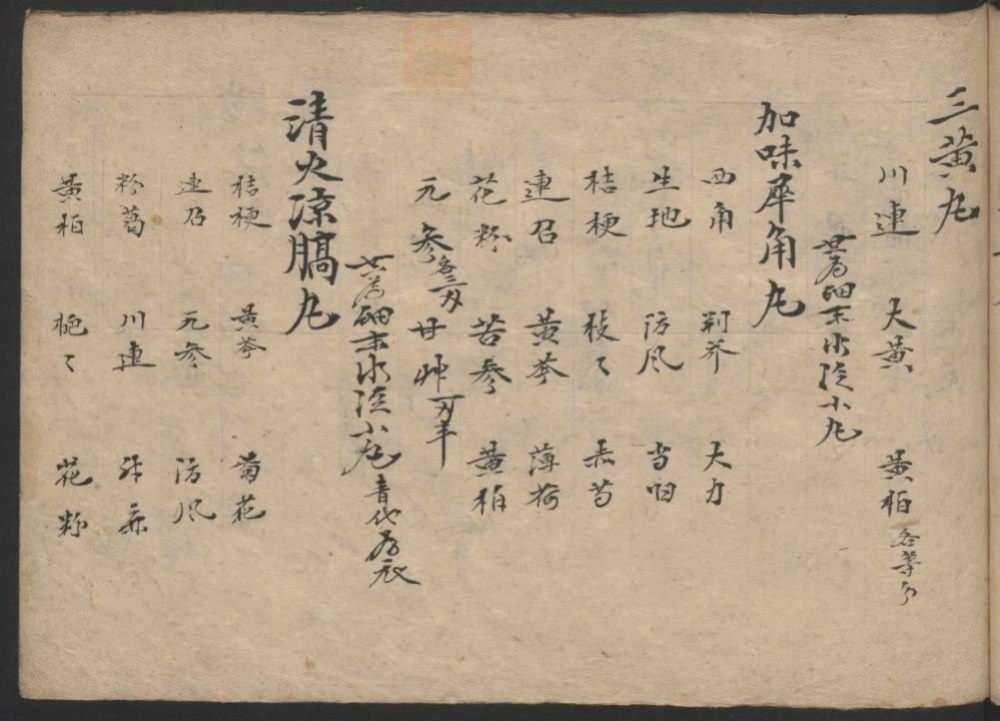 三黄丸
川連 大黄 黄柏 各等分
共为細末水泛小丸
加味犀角丸
西角 荆芥 大力
生地 防风 当归
桔梗 枝〻 赤芍
連召 黄芩 薄荷
花粉 苦参 黄柏
元参 各三刄 甘艸 一刄半
共为細末水泛小丸 青代为衣
清火凉膈丸
桔梗 黄芩 菊花
連召 元参 防风
粉葛 川連
黄柏 枝〻 花粉